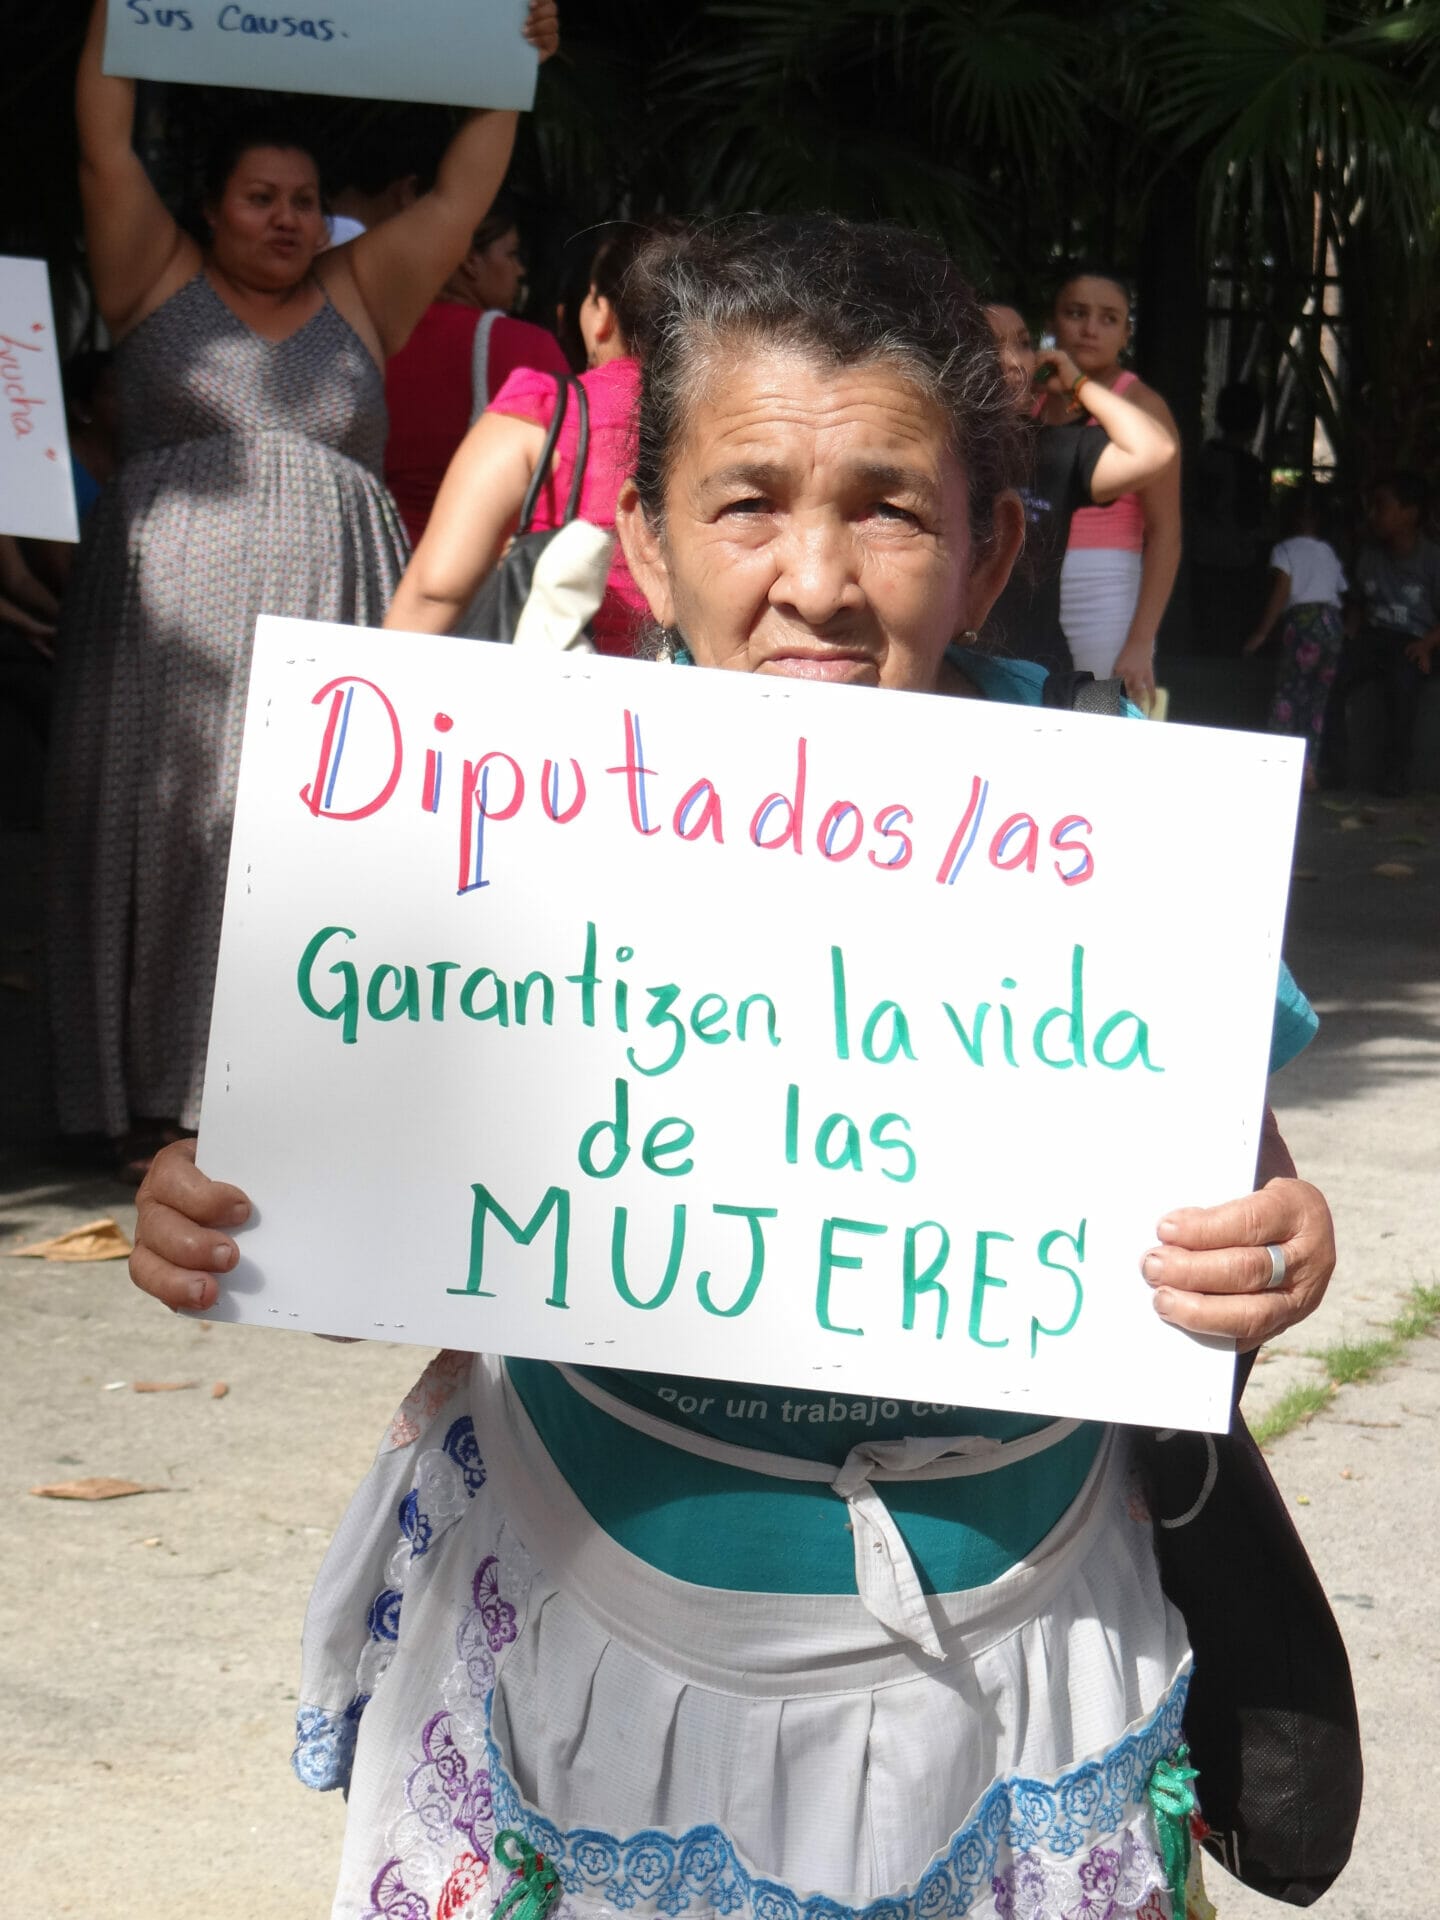 Sus Causas.
"Lucha"
Diputados/as
Garantizen la vida
de las
MUJERES
Por un trabajo